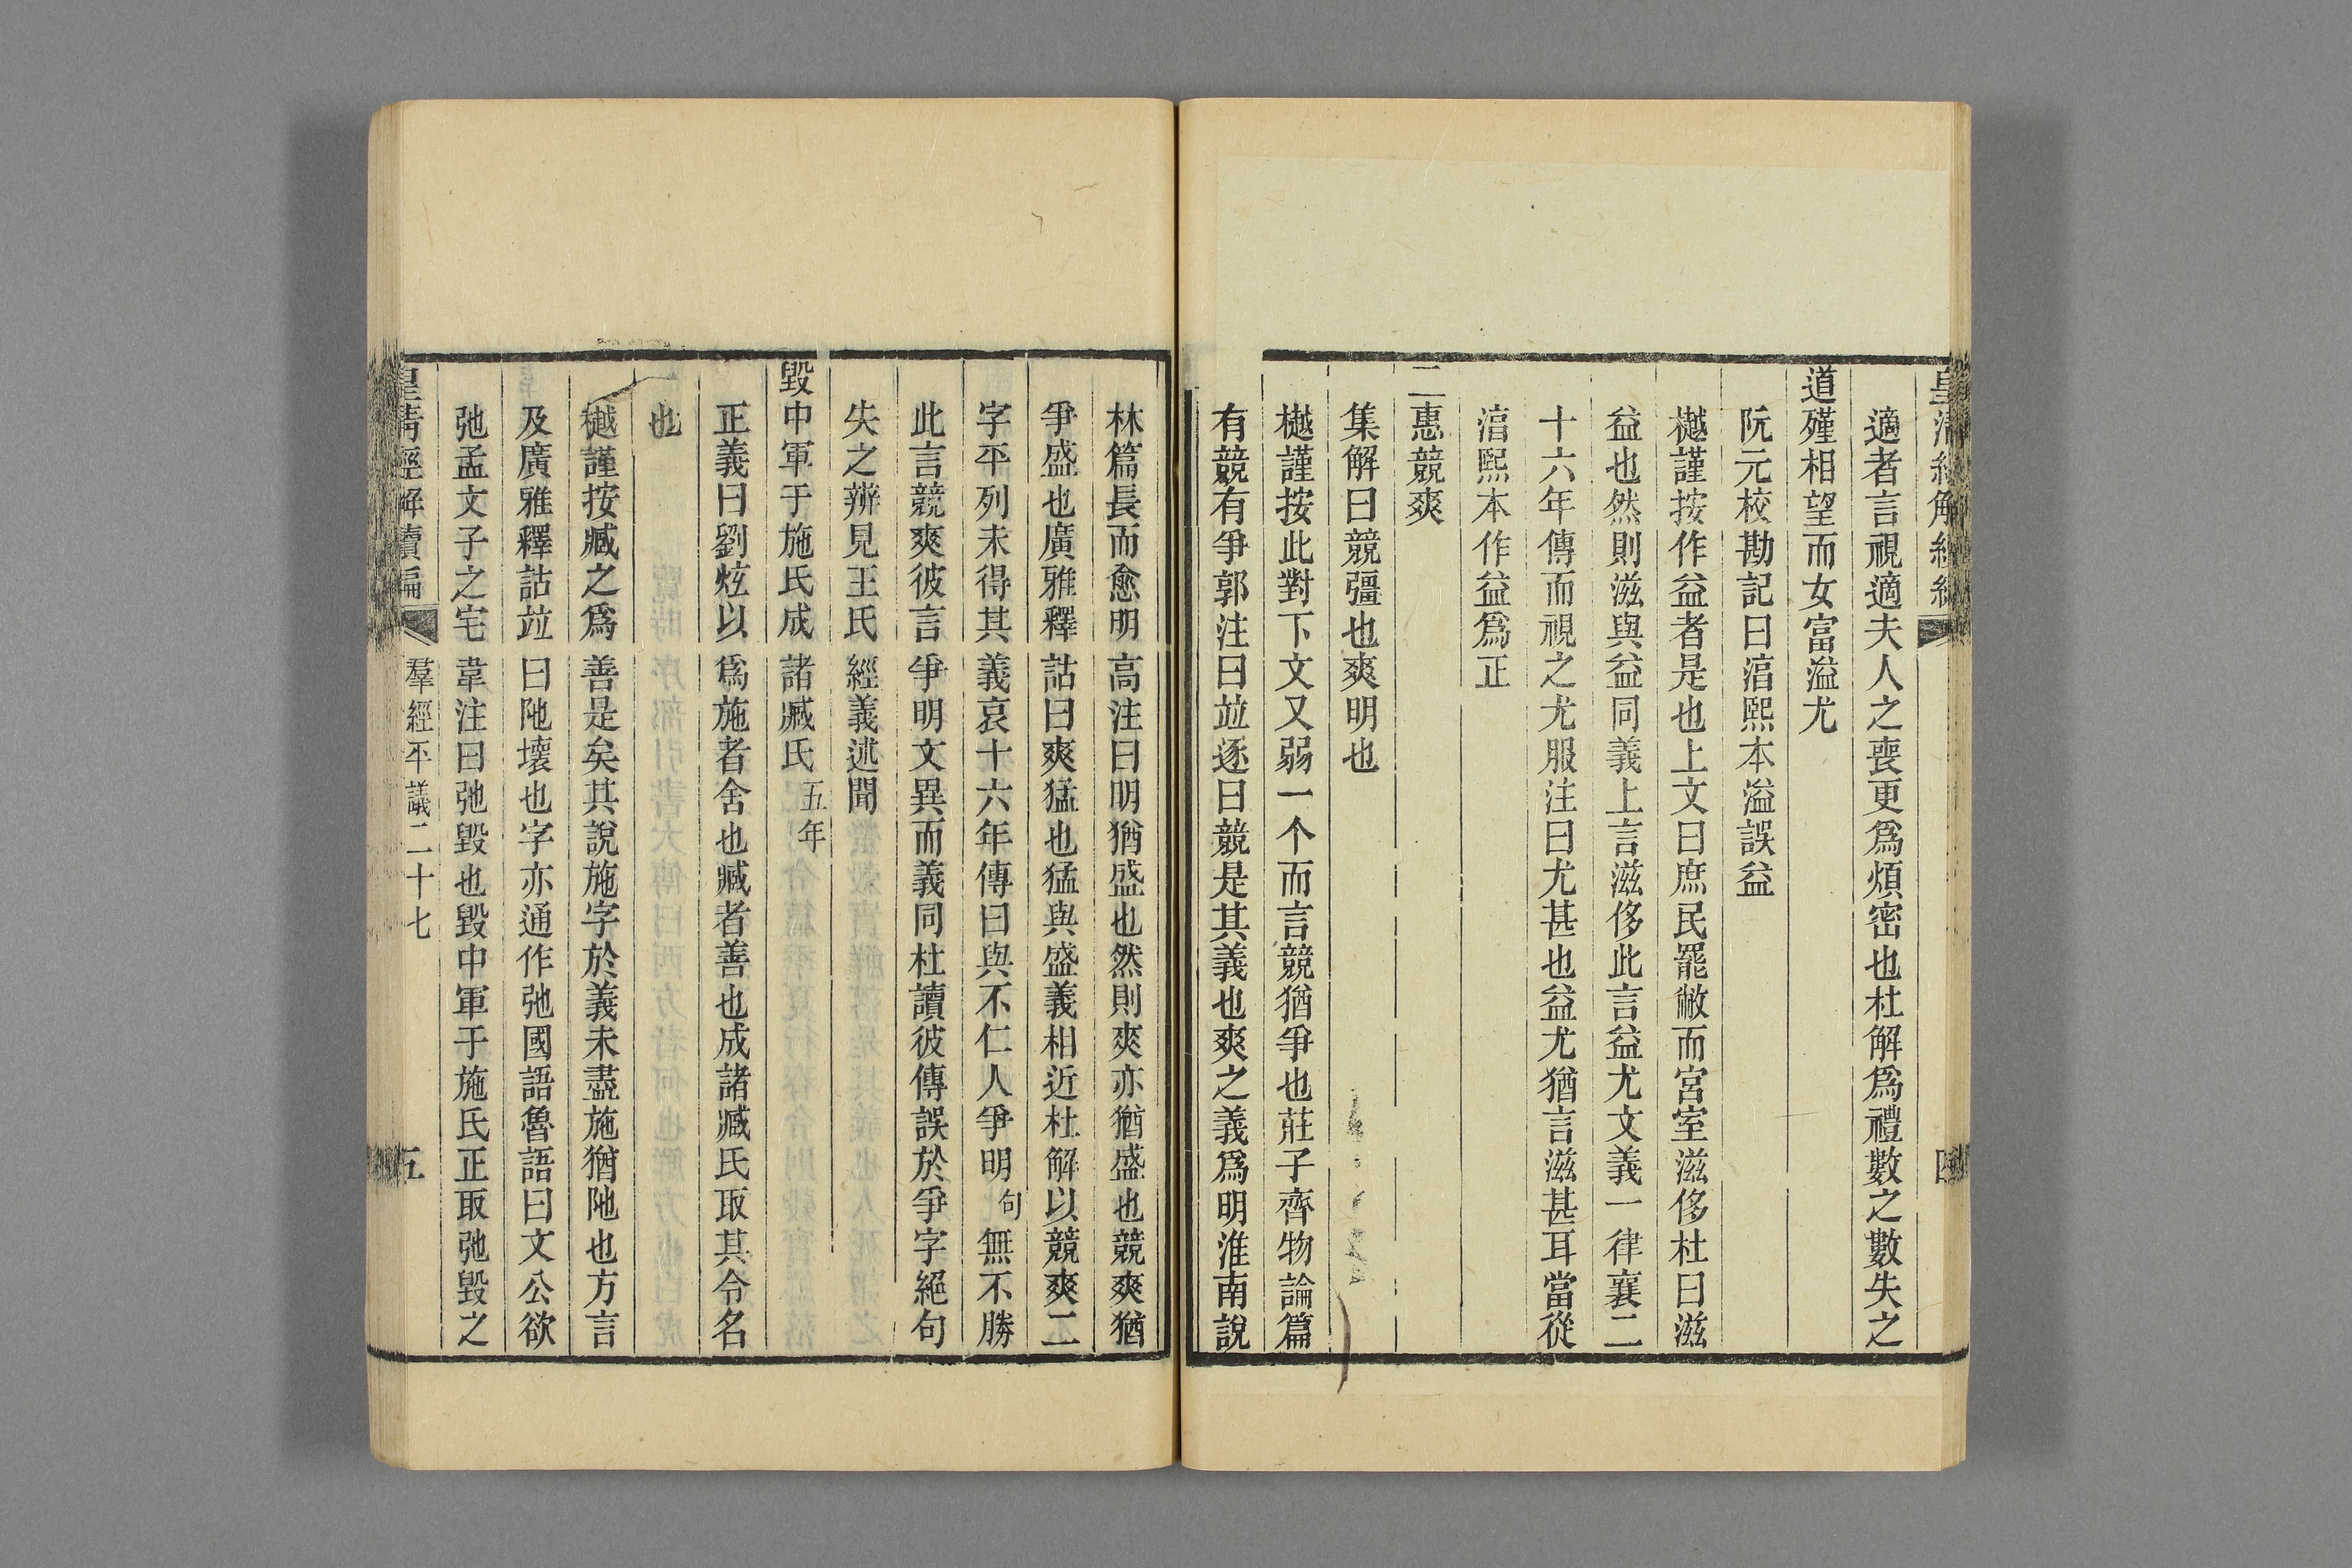 適者言視適夫人之喪更爲煩密也杜解爲禮數之數失之
道殣相望而女富溢尤
阮元校勘記曰淯熙本溢誤益
樾謹按作益者是也上文曰庶民罷敝而宮室滋侈杜曰滋
益也然則滋與益同義上言滋侈此言益尤文義一律襄二
十六年傳而視之尤服注曰尤甚也益尤猶言滋甚耳當從
淯熙本作益爲正
二惠競爽
集解曰競彊也爽明也
樾謹按此對下文又弱一个而言競猶爭也莊子齊物論篇
有競有爭郭注曰竝逐曰競是其義也爽之義爲明淮南說
林篇長而愈明高注曰明猶盛也然則爽亦猶盛也競爽猶
爭盛也廣雅釋詁曰爽猛也猛與盛義相近杜解以競爽二
字平列未得其義哀十六年傳曰與不仁人爭明句無不勝
此言競爽彼言爭明文異而義同杜讀彼傳誤於爭字絕句
失之辨見王氏經義述聞
毀中軍于施氏成諸臧氏五年
正義曰劉炫以爲施者舍也臧者善也成諸臧氏取其令名
也
樾謹按臧之爲善是矣其說施字於義未盡施猶阤也方言
及廣雅釋詁竝曰阤壞也字亦通作弛國語魯語曰文公欲
弛孟文子之宅韋注曰弛毀也毀中軍于施氏正取弛毀之
皇清經解續編
羣經平議二十七
五